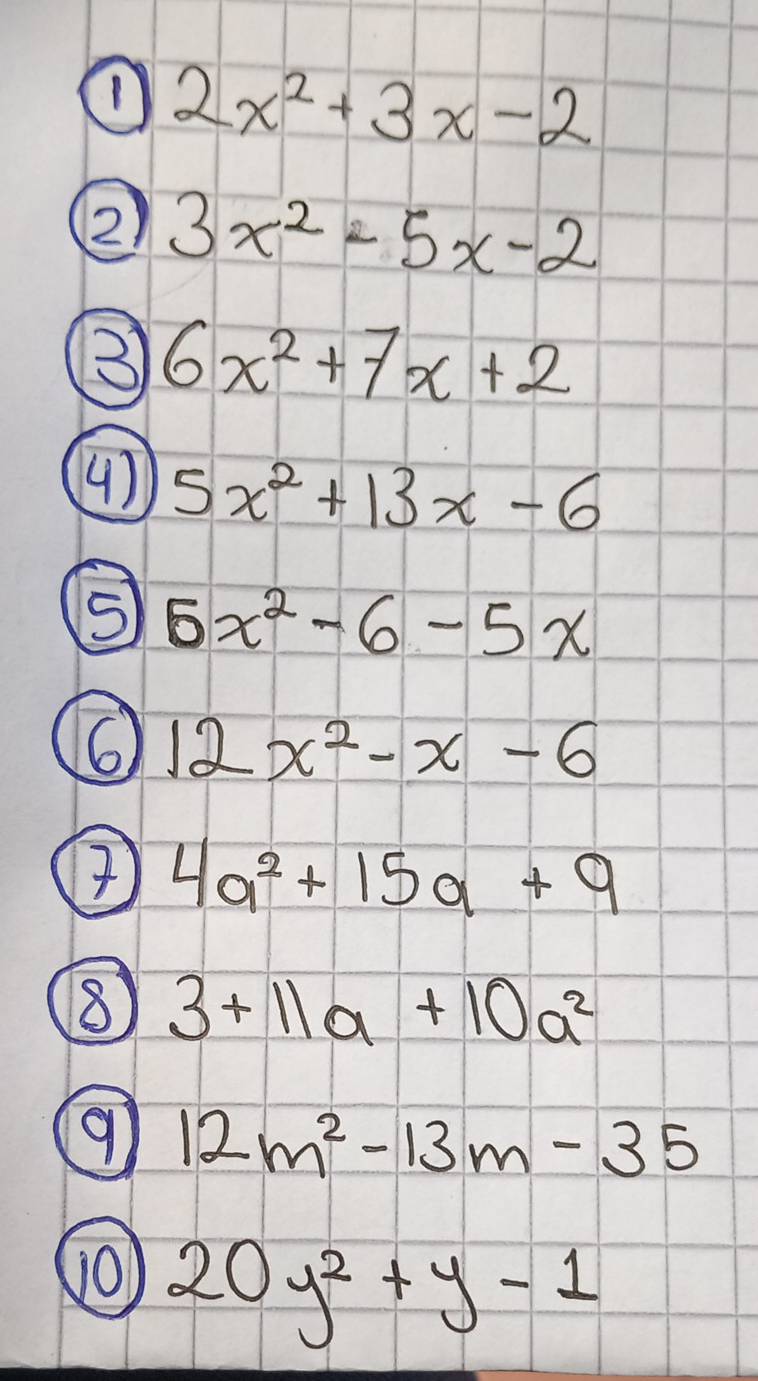 ① 2x² + 3x - 2
② 3x² - 5x - 2
③ 6x² + 7x + 2
④ 5x² + 13x - 6
⑤ 6x² - 6 - 5x
⑥ 12x² - x - 6
⑦ 4a² + 15a + 9
⑧ 3 + 11a + 10a²
⑨ 12m² - 13m - 35
⑩ 20y² + y - 1